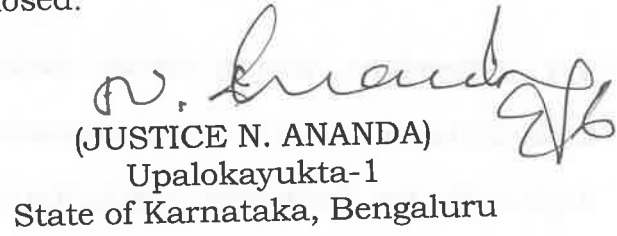 osed.
N. Ananda
(JUSTICE N. ANANDA)
Upalokayukta-1
State of Karnataka, Bengaluru